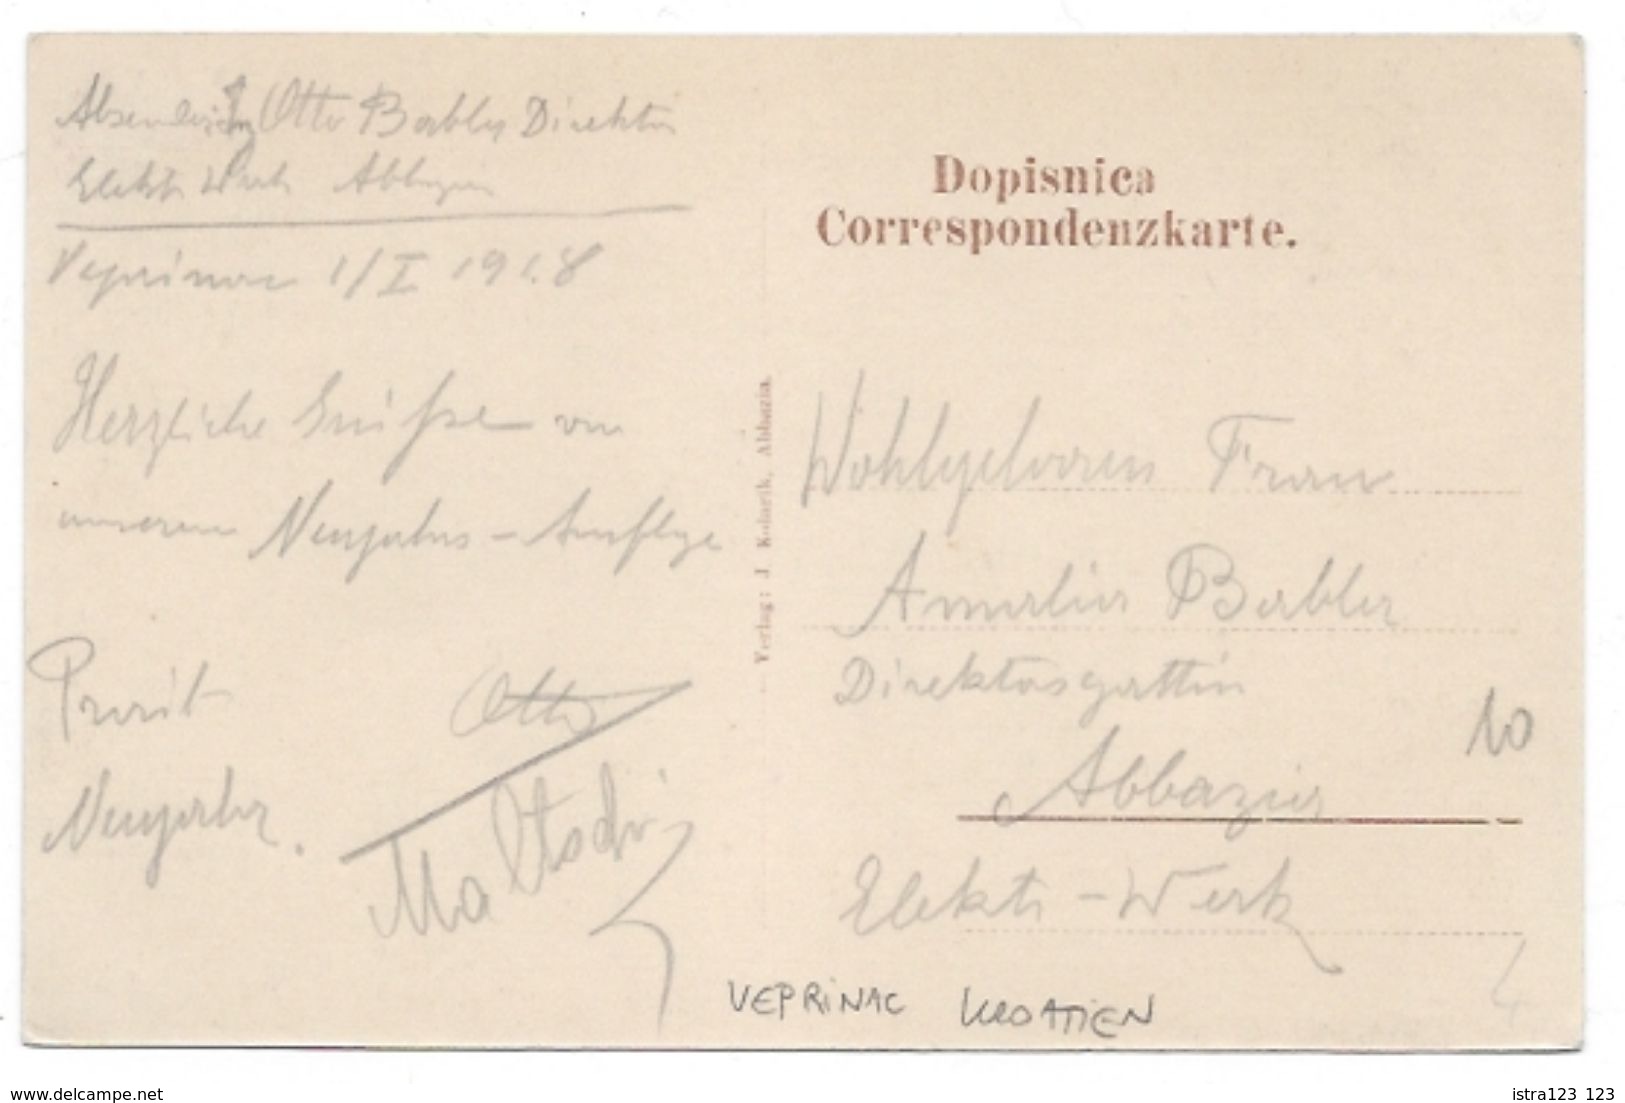 Absender: Ing Otto Babler Direktor
Elektr Werk Abbazia
Veprinac 1/I 1918
Herzliche Grüße von
unserem Neujahrs-Ausfluge
Prosit
Neujahr.
Otto
Dopisnica
Correspondenzkarte.
Verlag: J. Kolarik, Abbazia.
Wohlgeboren Frau
Amalia Babler
Direktorsgattin
Abbazia
Elektr-Werk
10
VEPRINAC KROATIEN
4
www.delcampe.net
istra123 123